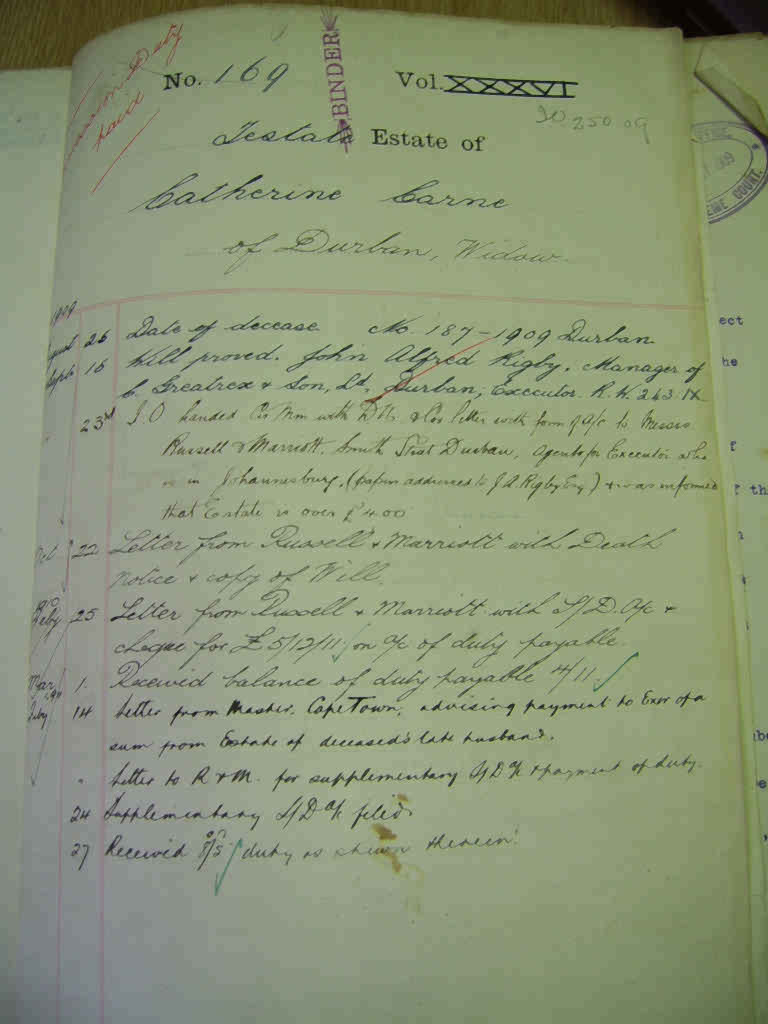 Duty
paid
No. 169
BINDER
Vol. XXXXVI
250 09
Testate Estate of
Catherine Carne
of Durban, Widow.
1909
August 26 Date of decease No. 187-1909 Durban.
Sept. 15 Will proved. John Alfred Rigby, Manager of
C. Greatrex & Son, Ld, Durban, Executor. R.W. 263.
" 23rd I.O handed with & Cos letter with form of a/c to Messrs
Russell & Marriott. Smith Street Durban, agents for Executor who
is in Johannesburg, (papers addressed to J A Rigby Esq) & was informed
that Estate is over £400
Oct 22 Letter from Russell & Marriott with Death
notice & copy of Will.
1910
Feby 25 Letter from Russell & Marriott with S/D. a/c &
cheque for £5/12/11 on a/c of duty payable.
Mar 1. Received balance of duty payable 4/11.
July 14 Letter from Master. Cape Town, advising payment to Exor of a
sum from Estate of deceased's late husband.
" Letter to R & M. for supplementary S/D a/c & payment of duty.
24 Supplementary S/D a/c filed.
27 Received 8/5 duty as shewn therein.
COURT.
ect
he
f
f th